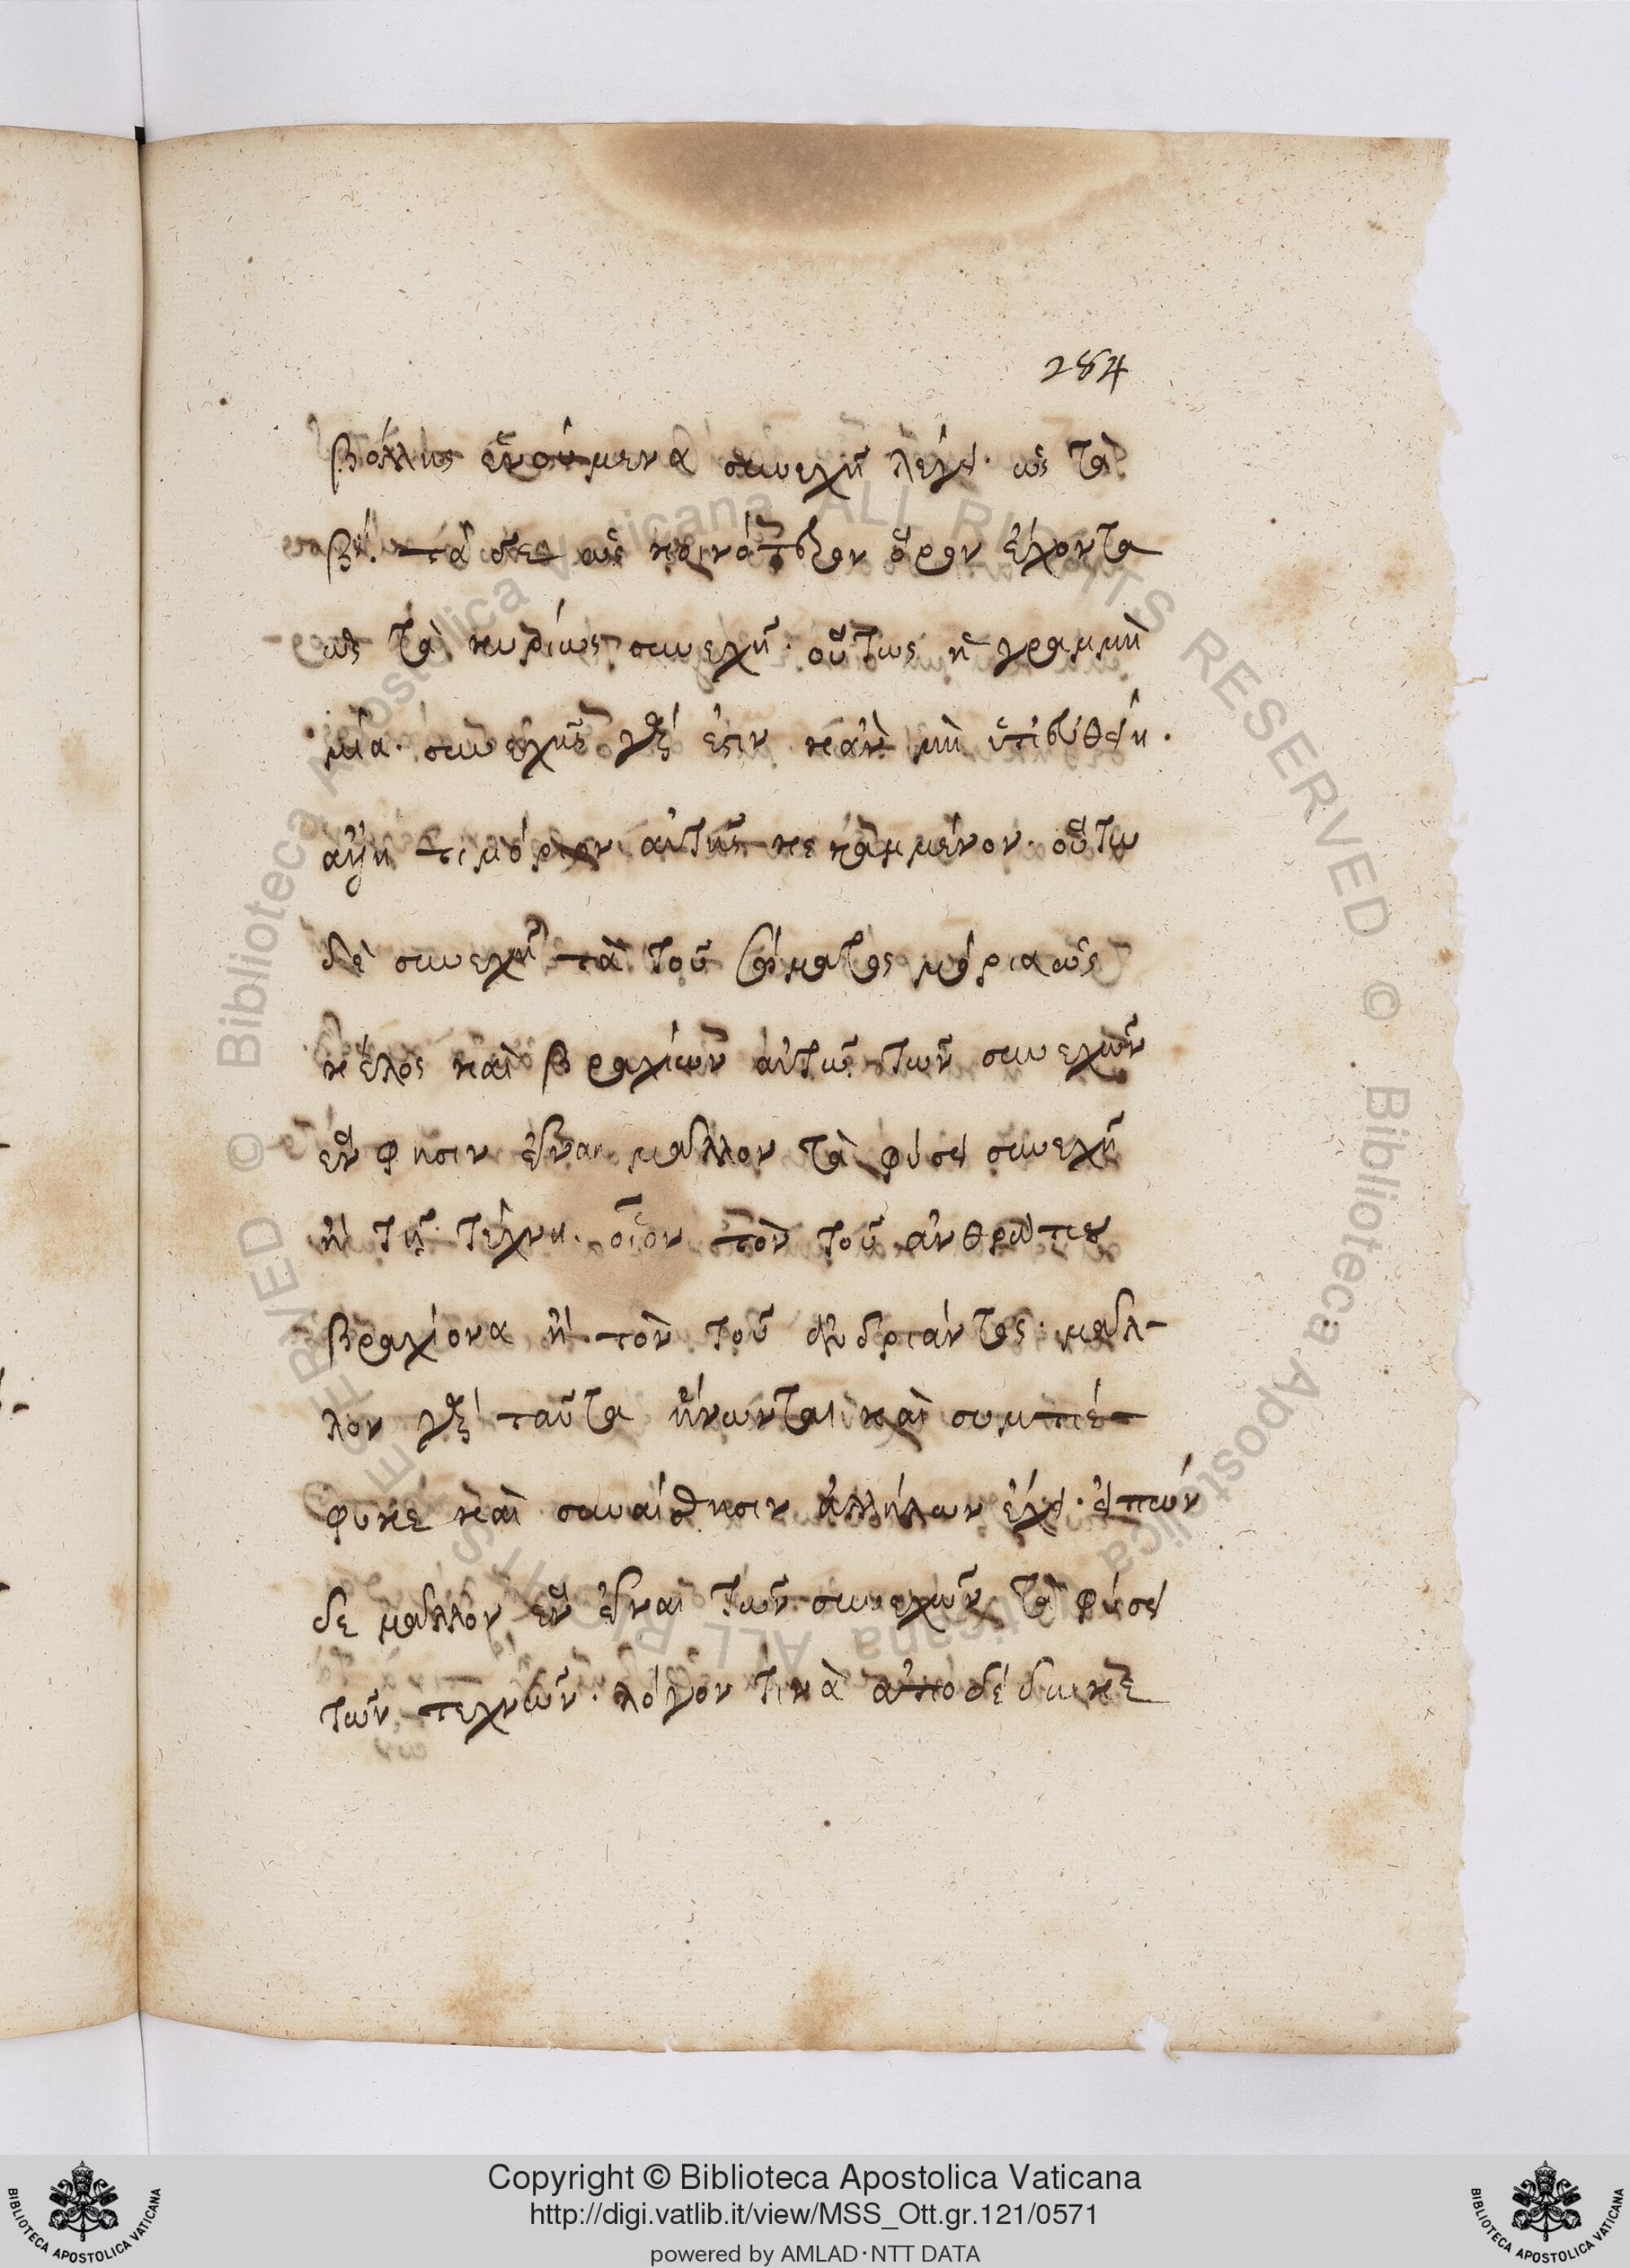 284
βόλλης ἑνούμενα συνεχῆ λέγει· ὡς τὰ
τὰ δὲ ὡς κοινὸν ὅρον ἔχοντα
ὡς τὰ κυρίως συνεχῆ· οὕτως ἡ γραμμὴ
μία· συνεχὴς γάρ ἐστιν κἂν μὴ
τι μόριον αὐτῆς κεκαμμένον· οὕτω
δὲ συνεχῆ τὰ τοῦ σώματος μόρια ὡς
σκέλος καὶ βραχίων αὐτῶν τῶν συνεχῶν
ἓν φησιν εἶναι μᾶλλον τὰ φύσει συνεχῆ
ἢ τῇ τέχνῃ· οἷον τὸν τοῦ ἀνθρώπου
βραχίονα ἢ τὸν τοῦ ἀνδριάντος· μᾶλ-
λον γάρ ταῦτα ἥνωνται καὶ συμπέ-
φυκε καὶ συναίσθησιν ἀλλήλων ἔχει· εἰπών
δὲ μᾶλλον ἓν εἶναι τῶν συνεχῶν τὰ φύσει
τῶν τεχνῶν· λόγον τινὰ ἀποδέδωκε
Copyright © Biblioteca Apostolica Vaticana
http://digi.vatlib.it/view/MSS_Ott.gr.121/0571
powered by AMLAD·NTT DATA
BIBLIOTECA APOSTOLICA VATICANA
BIBLIOTECA APOSTOLICA VATICANA
© Biblioteca Apostolica Vaticana ALL RIGHTS RESERVED
© Biblioteca Apostolica Vaticana ALL RIGHTS RESERVED